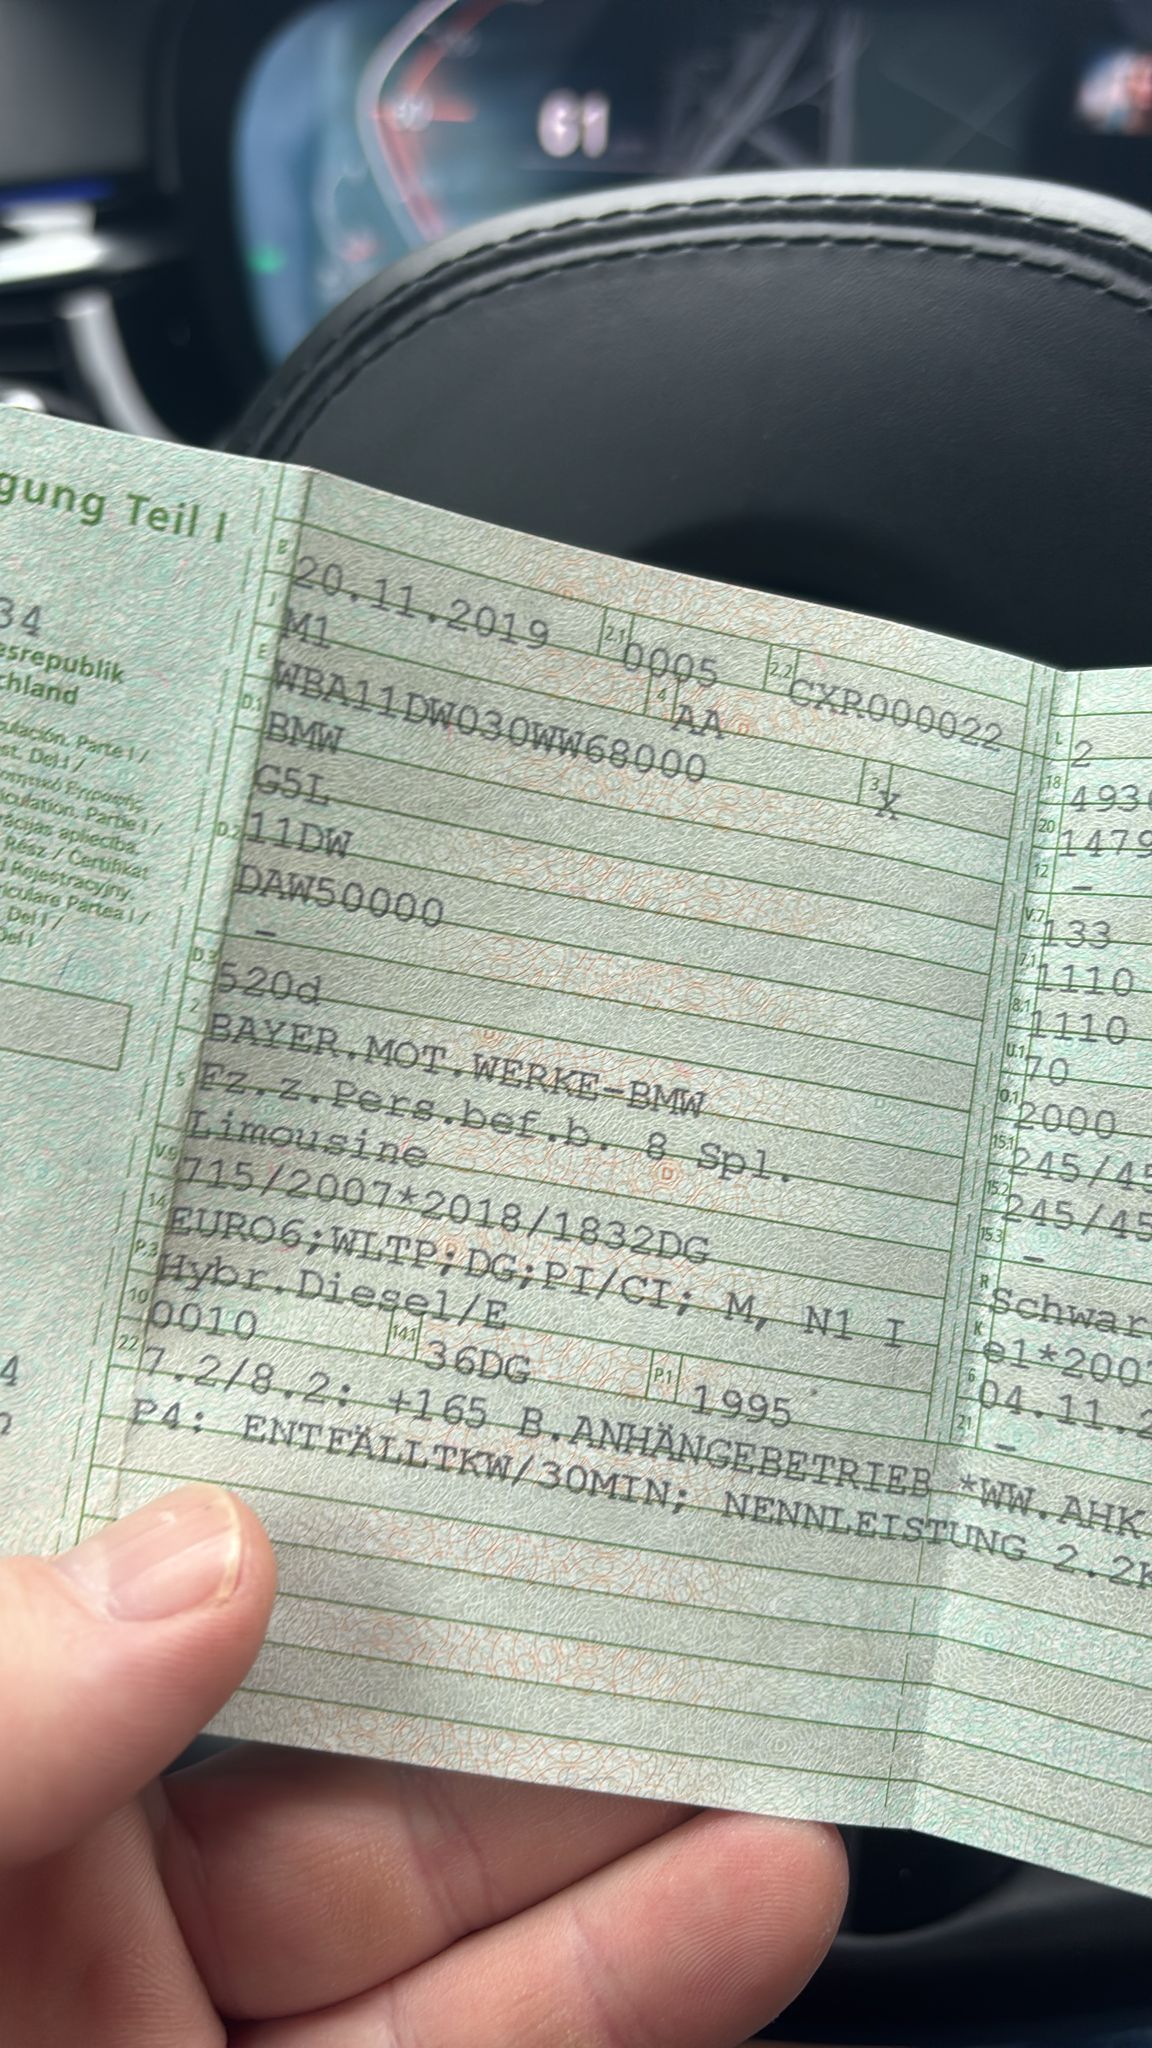 61
gung Teil I
34
esrepublik
chland
ulación. Parte I /
st. Del I /
iculation. Partie I /
rācijas apliecība.
Rész / Certifikat
d Rejestracyjny.
riculare Partea I /
Del I /
Del I
4
B 20.11.2019 2.1 0005 2.2 CXR000022
J M1 4 AA
E WBA11DW030WW68000 3 X
D.1 BMW
G5L
D.2 11DW
DAW50000
-
D.3 520d
2 BAYER.MOT.WERKE-BMW
5 Fz.z.Pers.bef.b. 8 Spl.
Limousine
V.9 715/2007*2018/1832DG
14 EURO6;WLTP;DG;PI/CI; M, N1 I
P.3 Hybr.Diesel/E
10 0010 14.1 36DG P.1 1995
22 7.2/8.2: +165 B.ANHÄNGEBETRIEB *WW.AHK
P4: ENTFÄLLTKW/30MIN; NENNLEISTUNG 2.2K
L 2
18 493
20 1479
12 -
V.7 133
7.1 1110
8.1 1110
U.1 70
O.1 2000
15.1 245/45
15.2 245/45
15.3 -
R Schwar
K e1*200
6 04.11.2
21 -